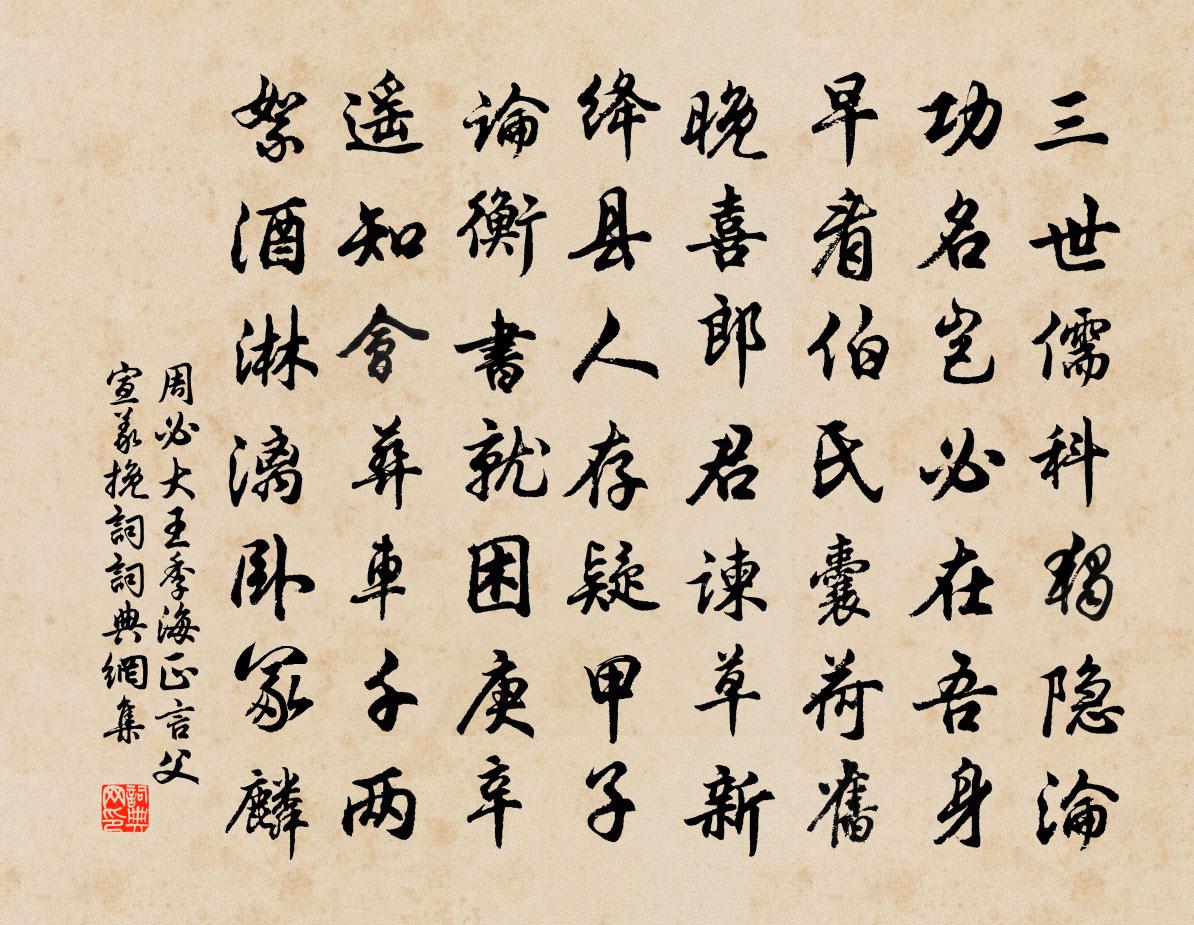 三世儒科独隐沦
功名岂必在吾身
早看伯氏囊荷旧
晚喜郎君谏草新
绛县人存疑甲子
論衡書就困庚辛
遥知會葬車千两
絮酒淋漓卧冢麟
周必大王季海正言父
宣义挽詞詞典網集
詞典